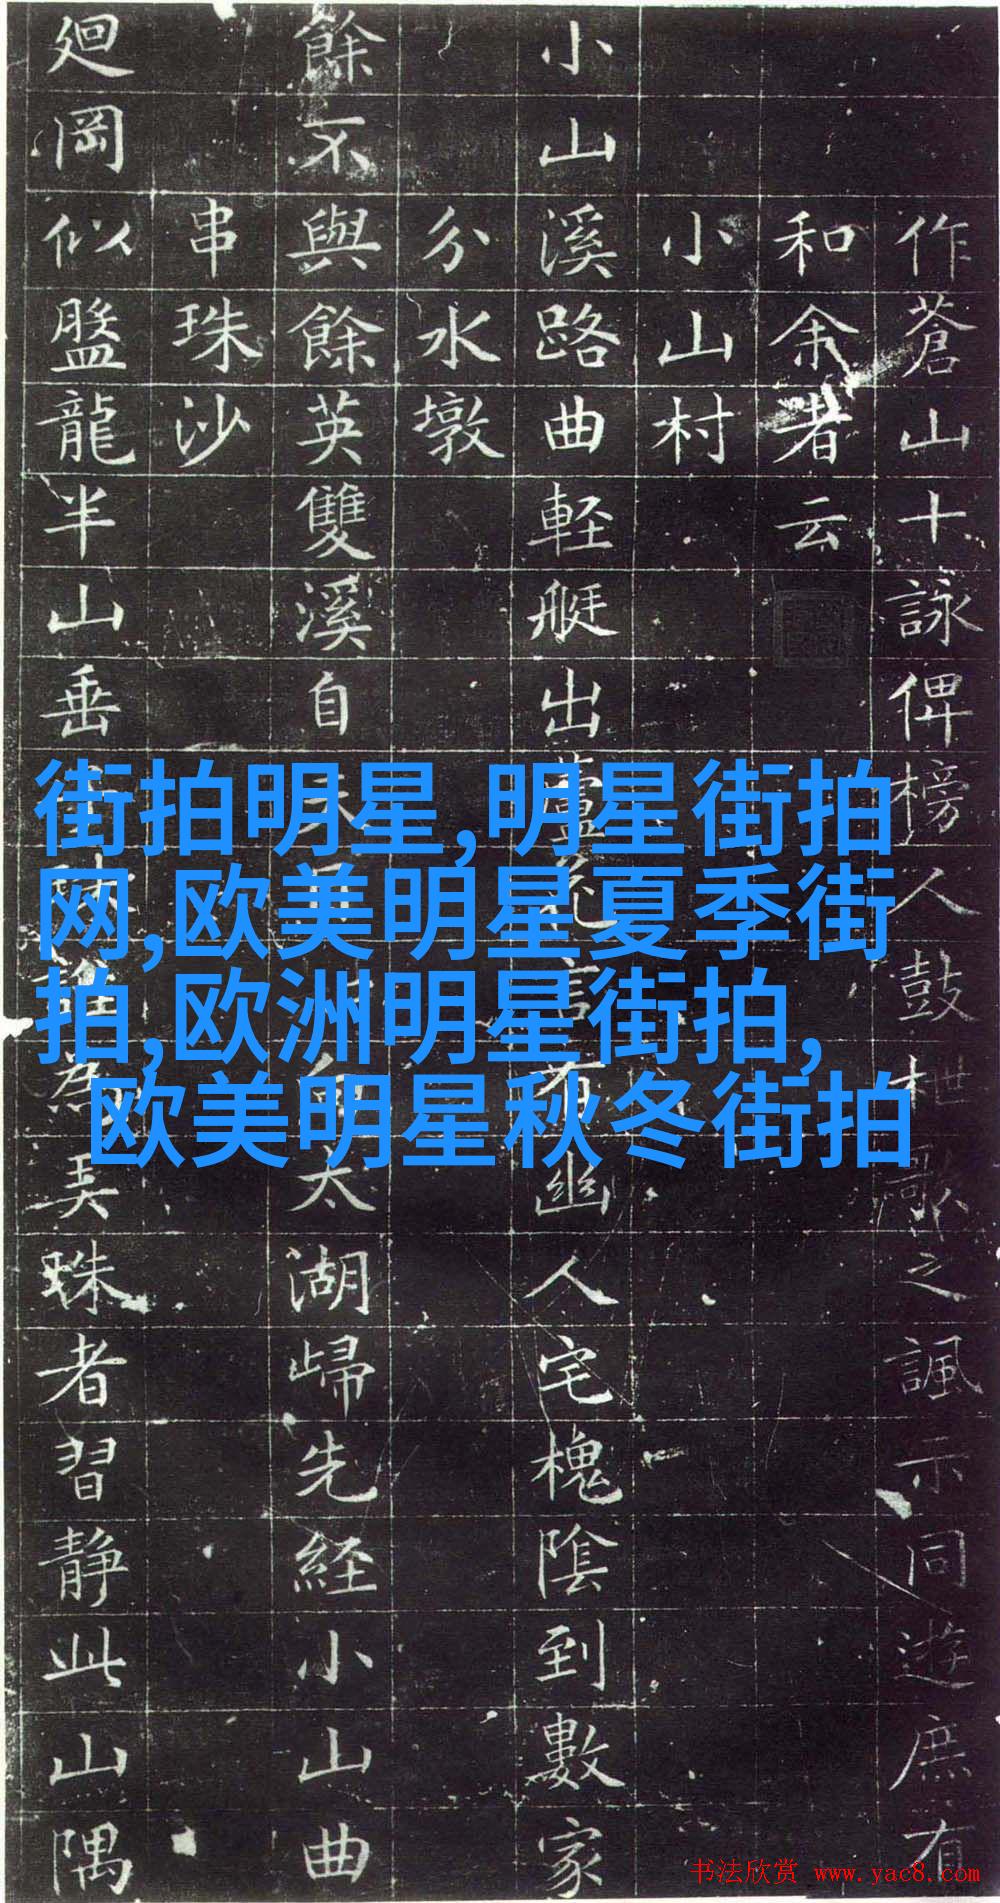 作蒼山十詠俾榜人鼓枻歌之諷示同遊庶有
和余者云
小山村
小山溪路曲軽艇出蘆花言有幽人宅槐陰到數家
分水墩
餘不與餘英雙溪自太湖歸先経小山曲
串珠沙
廻岡似盤龍半山垂誰為弄珠者習静此山隅
街拍明星,明星街拍
网,欧美明星夏季街
拍,欧洲明星街拍,
欧美明星秋冬街拍
书法欣赏 www.yac8.com